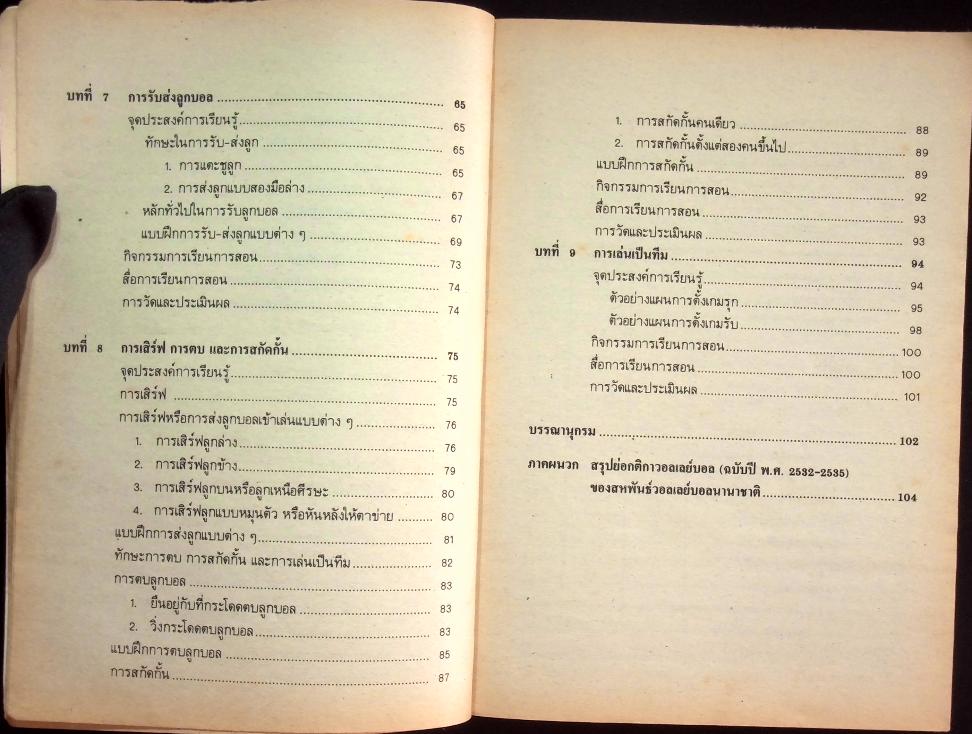 บทที่ 7 การรับส่งลูกบอล ........ 65
จุดประสงค์การเรียนรู้ ........ 65
ทักษะในการรับ-ส่งลูก ........ 65
1. การแตะชูลูก ........ 65
2. การส่งลูกแบบสองมือล่าง ........ 67
หลักทั่วไปในการรับลูกบอล ........ 67
แบบฝึกการรับ-ส่งลูกแบบต่าง ๆ ........ 69
กิจกรรมการเรียนการสอน ........ 73
สื่อการเรียนการสอน ........ 74
การวัดและประเมินผล ........ 74
บทที่ 8 การเสิร์ฟ การตบ และการสกัดกั้น ........ 75
จุดประสงค์การเรียนรู้ ........ 75
การเสิร์ฟ ........ 75
การเสิร์ฟหรือการส่งลูกบอลเข้าเล่นแบบต่าง ๆ ........ 76
1. การเสิร์ฟลูกล่าง ........ 76
2. การเสิร์ฟลูกข้าง ........ 79
3. การเสิร์ฟลูกบนหรือลูกเหนือศีรษะ ........ 80
4. การเสิร์ฟลูกแบบหมุนตัว หรือหันหลังให้ตาข่าย ........ 80
แบบฝึกการส่งลูกแบบต่าง ๆ ........ 81
ทักษะการตบ การสกัดกั้น และการเล่นเป็นทีม ........ 82
การตบลูกบอล ........ 83
1. ยืนอยู่กับที่กระโดดตบลูกบอล ........ 83
2. วิ่งกระโดดตบลูกบอล ........ 83
แบบฝึกการตบลูกบอล ........ 85
การสกัดกั้น ........ 87
1. การสกัดกั้นคนเดียว ........ 88
2. การสกัดกั้นตั้งแต่สองคนขึ้นไป ........ 89
แบบฝึกการสกัดกั้น ........ 89
กิจกรรมการเรียนการสอน ........ 92
สื่อการเรียนการสอน ........ 93
การวัดและประเมินผล ........ 93
บทที่ 9 การเล่นเป็นทีม ........ 94
จุดประสงค์การเรียนรู้ ........ 94
ตัวอย่างแผนการตั้งเกมรุก ........ 95
ตัวอย่างแผนการตั้งเกมรับ ........ 98
กิจกรรมการเรียนการสอน ........ 100
สื่อการเรียนการสอน ........ 100
การวัดและประเมินผล ........ 101
บรรณานุกรม ........ 102
ภาคผนวก สรุปย่อกติกาวอลเลย์บอล (ฉบับปี พ.ศ. 2532-2535)
ของสหพันธ์วอลเลย์บอลนานาชาติ ........ 104